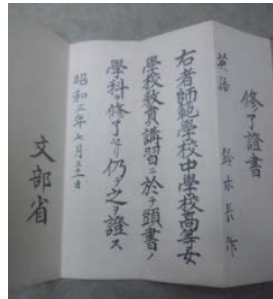 修了證書
英語 鈴木長作
右者師範學校中學校高等女
學校教員講習ニ於テ頭書ノ
學科修了セリ仍テ之ヲ證ス
昭和三年七月三十一日
文部省